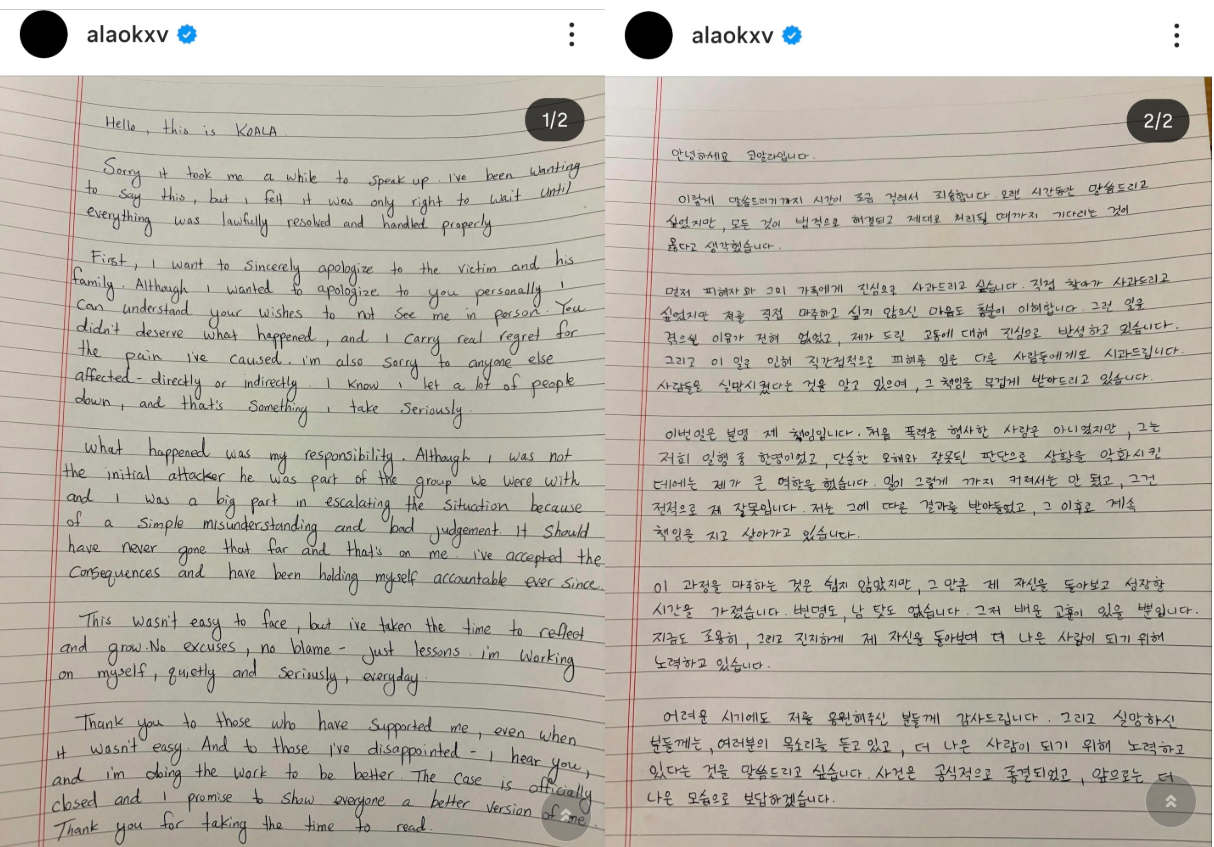 alaokxv
1/2
Hello, this is KOALA.
Sorry it took me a while to speak up. I've been wanting
to say this, but i felt it was only right to wait until
everything was lawfully resolved and handled properly
First, i want to sincerely apologize to the victim and his
family. Although i wanted to apologize to you personally i
can understand your wishes to not see me in person. You
didn't deserve what happened, and i carry real regret for
the pain i've caused. i'm also sorry to anyone else
affected - directly or indirectly. I know i let a lot of people
down, and that's something i take seriously.
what happened was my responsibility. Although i was not
the initial attacker he was part of the group we were with
and i was a big part in escalating the situation because
of a simple misunderstanding and bad judgement. It should
have never gone that far and that's on me. i've accepted the
consequences and have been holding myself accountable ever since.
This wasn't easy to face, but i've taken the time to reflect
and grow. No excuses, no blame - just lessons. i'm working
on myself, quietly and seriously, everyday.
Thank you to those who have supported me, even when
it wasn't easy. And to those i've disappointed - i hear you,
and i'm doing the work to be better. The case is officially
closed and i promise to show everyone a better version of me.
Thank you for taking the time to read.
alaokxv
2/2
안녕하세요 코알라입니다.
이렇게 말씀드리기까지 시간이 조금 걸려서 죄송합니다 오랜 시간동안 말씀드리고
싶었지만, 모든 것이 법적으로 해결되고 제대로 처리될 때까지 기다리는 것이
옳다고 생각했습니다.
먼저 피해자와 그의 가족에게 진심으로 사과드리고 싶습니다. 직접 찾아가 사과드리고
싶었지만 저를 직접 마주하고 싶지 않으신 마음도 충분이 이해합니다. 그런 일을
겪으실 이유가 전혀 없었고, 제가 드린 고통에 대해 진심으로 반성하고 있습니다.
그리고 이 일로 인해 직간접적으로 피해를 입은 다른 사람들에게도 사과드립니다.
사람들을 실망시켰다는 것을 알고 있으며, 그 책임을 무겁게 받아드리고 있습니다.
이번일은 분명 제 책임입니다. 처음 폭력을 행사한 사람은 아니었지만, 그는
저희 일행 중 한명이었고, 단순한 오해와 잘못된 판단으로 상황을 악화시킨
데에는 제가 큰 역할을 했습니다. 일이 그렇게 까지 커져서는 안 됐고, 그건
전적으로 제 잘못입니다. 저는 그에 따른 결과를 받아들였고, 그 이후로 계속
책임을 지고 살아가고 있습니다.
이 과정을 마주하는 것은 쉽지 않았지만, 그 만큼 제 자신을 돌아보고 성장할
시간을 가졌습니다. 변명도, 남 탓도 없습니다. 그저 배운 교훈이 있을 뿐입니다.
지금도 조용히, 그리고 진지하게 제 자신을 돌아보며 더 나은 사람이 되기 위해
노력하고 있습니다.
어려운 시기에도 저를 응원해주신 분들께 감사드립니다. 그리고 실망하신
분들께는, 여러분의 목소리를 듣고 있고, 더 나은 사람이 되기 위해 노력하고
있다는 것을 말씀드리고 싶습니다. 사건은 공식적으로 종결되었고, 앞으로는 더
나은 모습으로 보답하겠습니다.